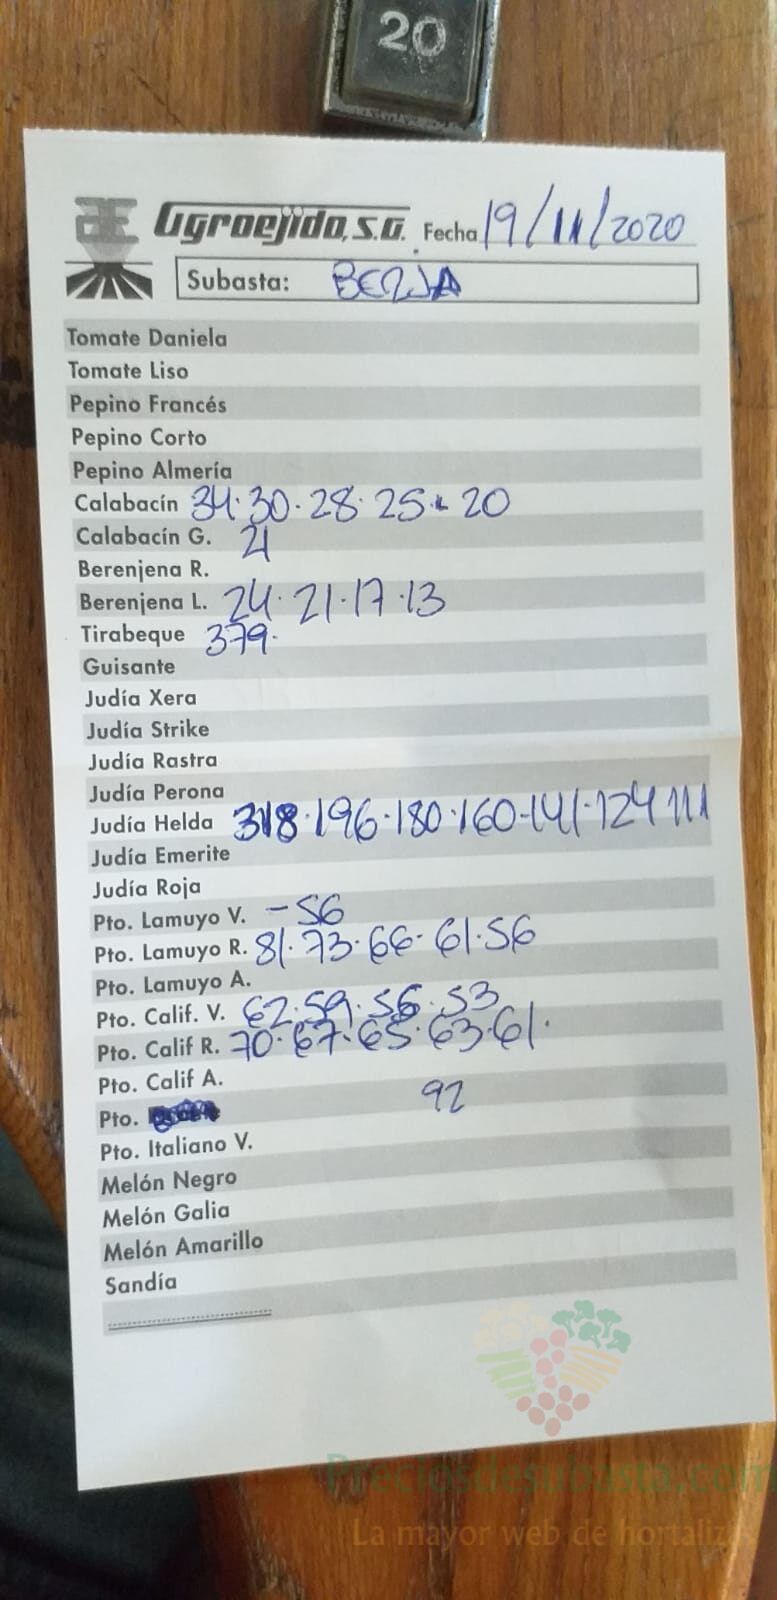 20
Agroejido, S.A. Fecha 19/11/2020
Subasta: BERJA
Tomate Daniela
Tomate Liso
Pepino Francés
Pepino Corto
Pepino Almería
Calabacín 34·30·28·25·20
Calabacín G. 21
Berenjena R.
Berenjena L. 24·21·17·13
Tirabeque 379·
Guisante
Judía Xera
Judía Strike
Judía Rastra
Judía Perona
Judía Helda 318·196·180·160-141·124 111
Judía Emerite
Judía Roja
Pto. Lamuyo V. -56
Pto. Lamuyo R. 81·73·66·61·56
Pto. Lamuyo A.
Pto. Calif. V. 62·59·56·53
Pto. Calif R. 70·67·65·63·61·
Pto. Calif A.
Pto. 92
Pto. Italiano V.
Melón Negro
Melón Galia
Melón Amarillo
Sandía
Preciosdesubasta.com
La mayor web de